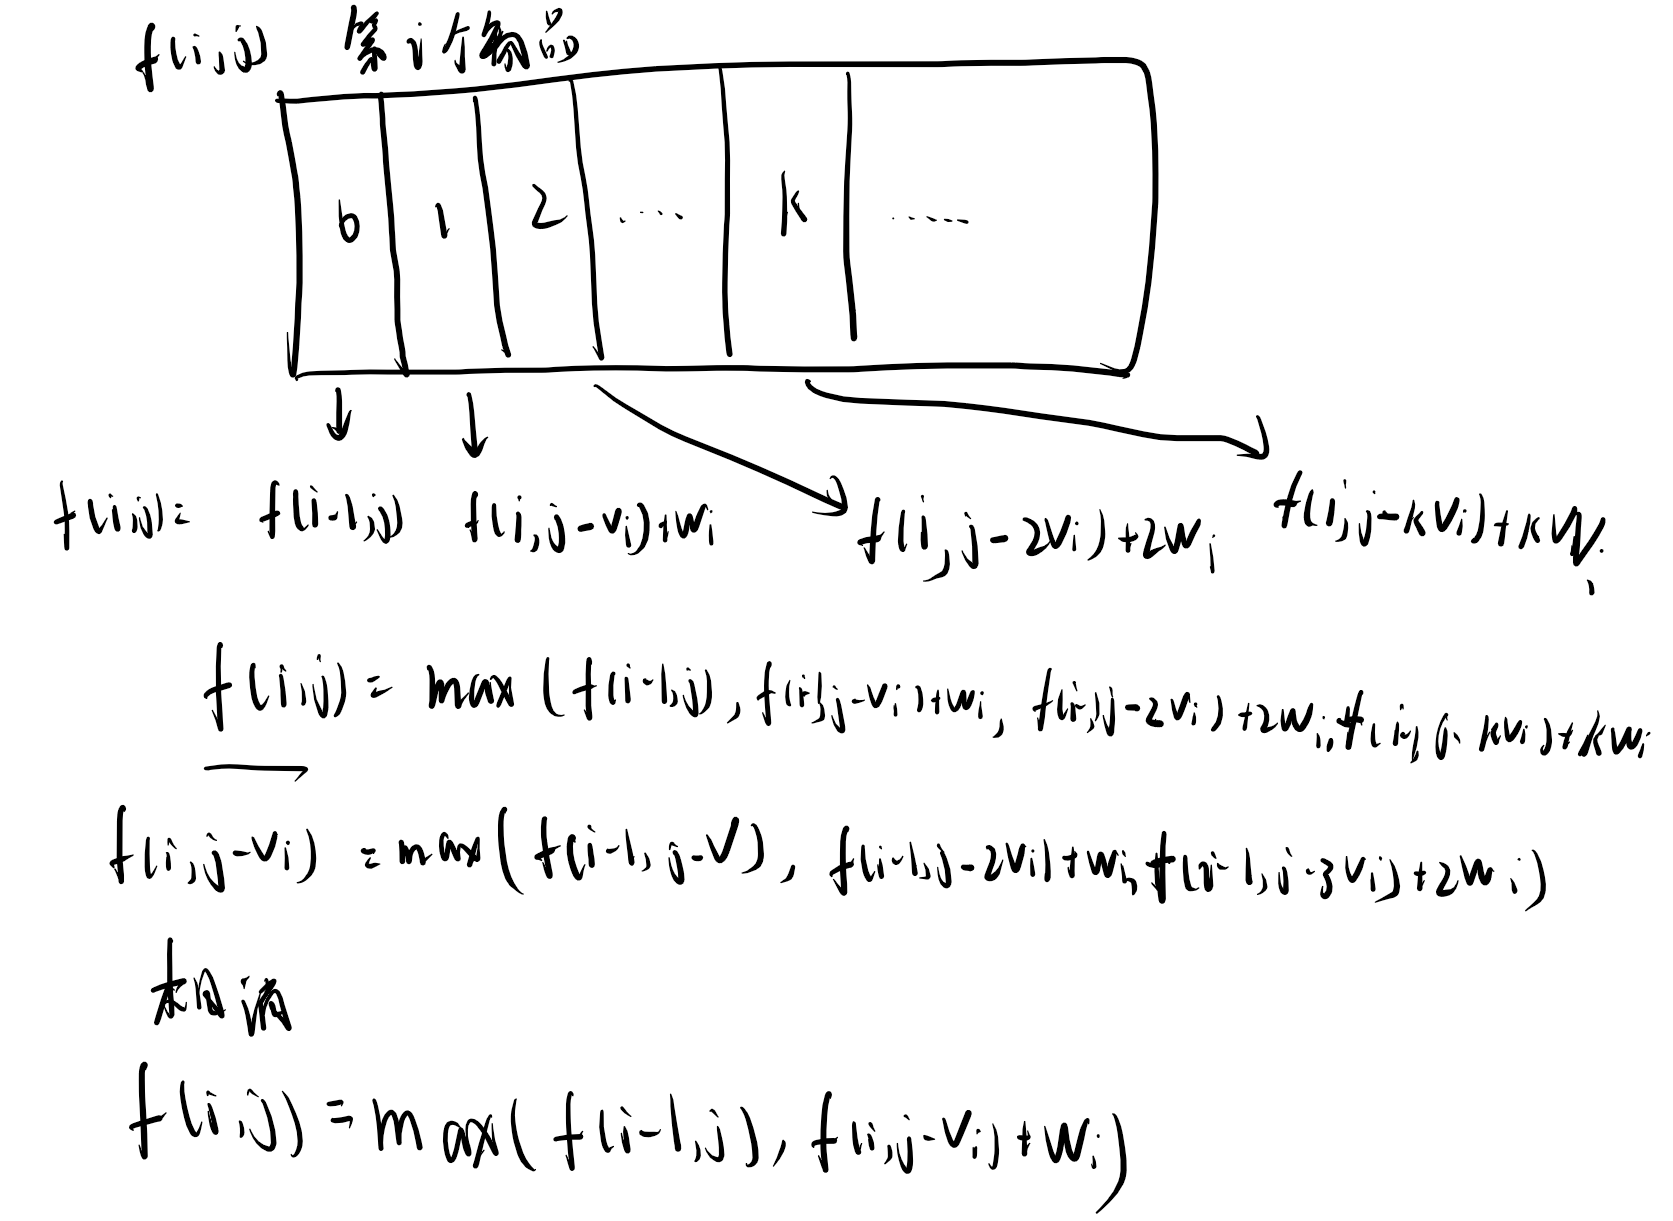 f(i,j) 第i个物品
0 1 2 .... k ......
f(i,j)= f(i-1,j) f(i,j-vi)+wi f(i,j-2vi)+2wi f(i,j-kvi)+kwi
f(i,j) = max (f(i-1,j), f(i-1,j-vi)+wi, f(i-1,j-2vi)+2wi, f(i-1,j-kvi)+kwi
f(i,j-vi) = max( f(i-1, j-v), f(i-1,j-2vi)+wi, f(i-1,j-3vi)+2wi)
f(i,j) = max( f(i-1,j), f(i,j-vi)+wi)